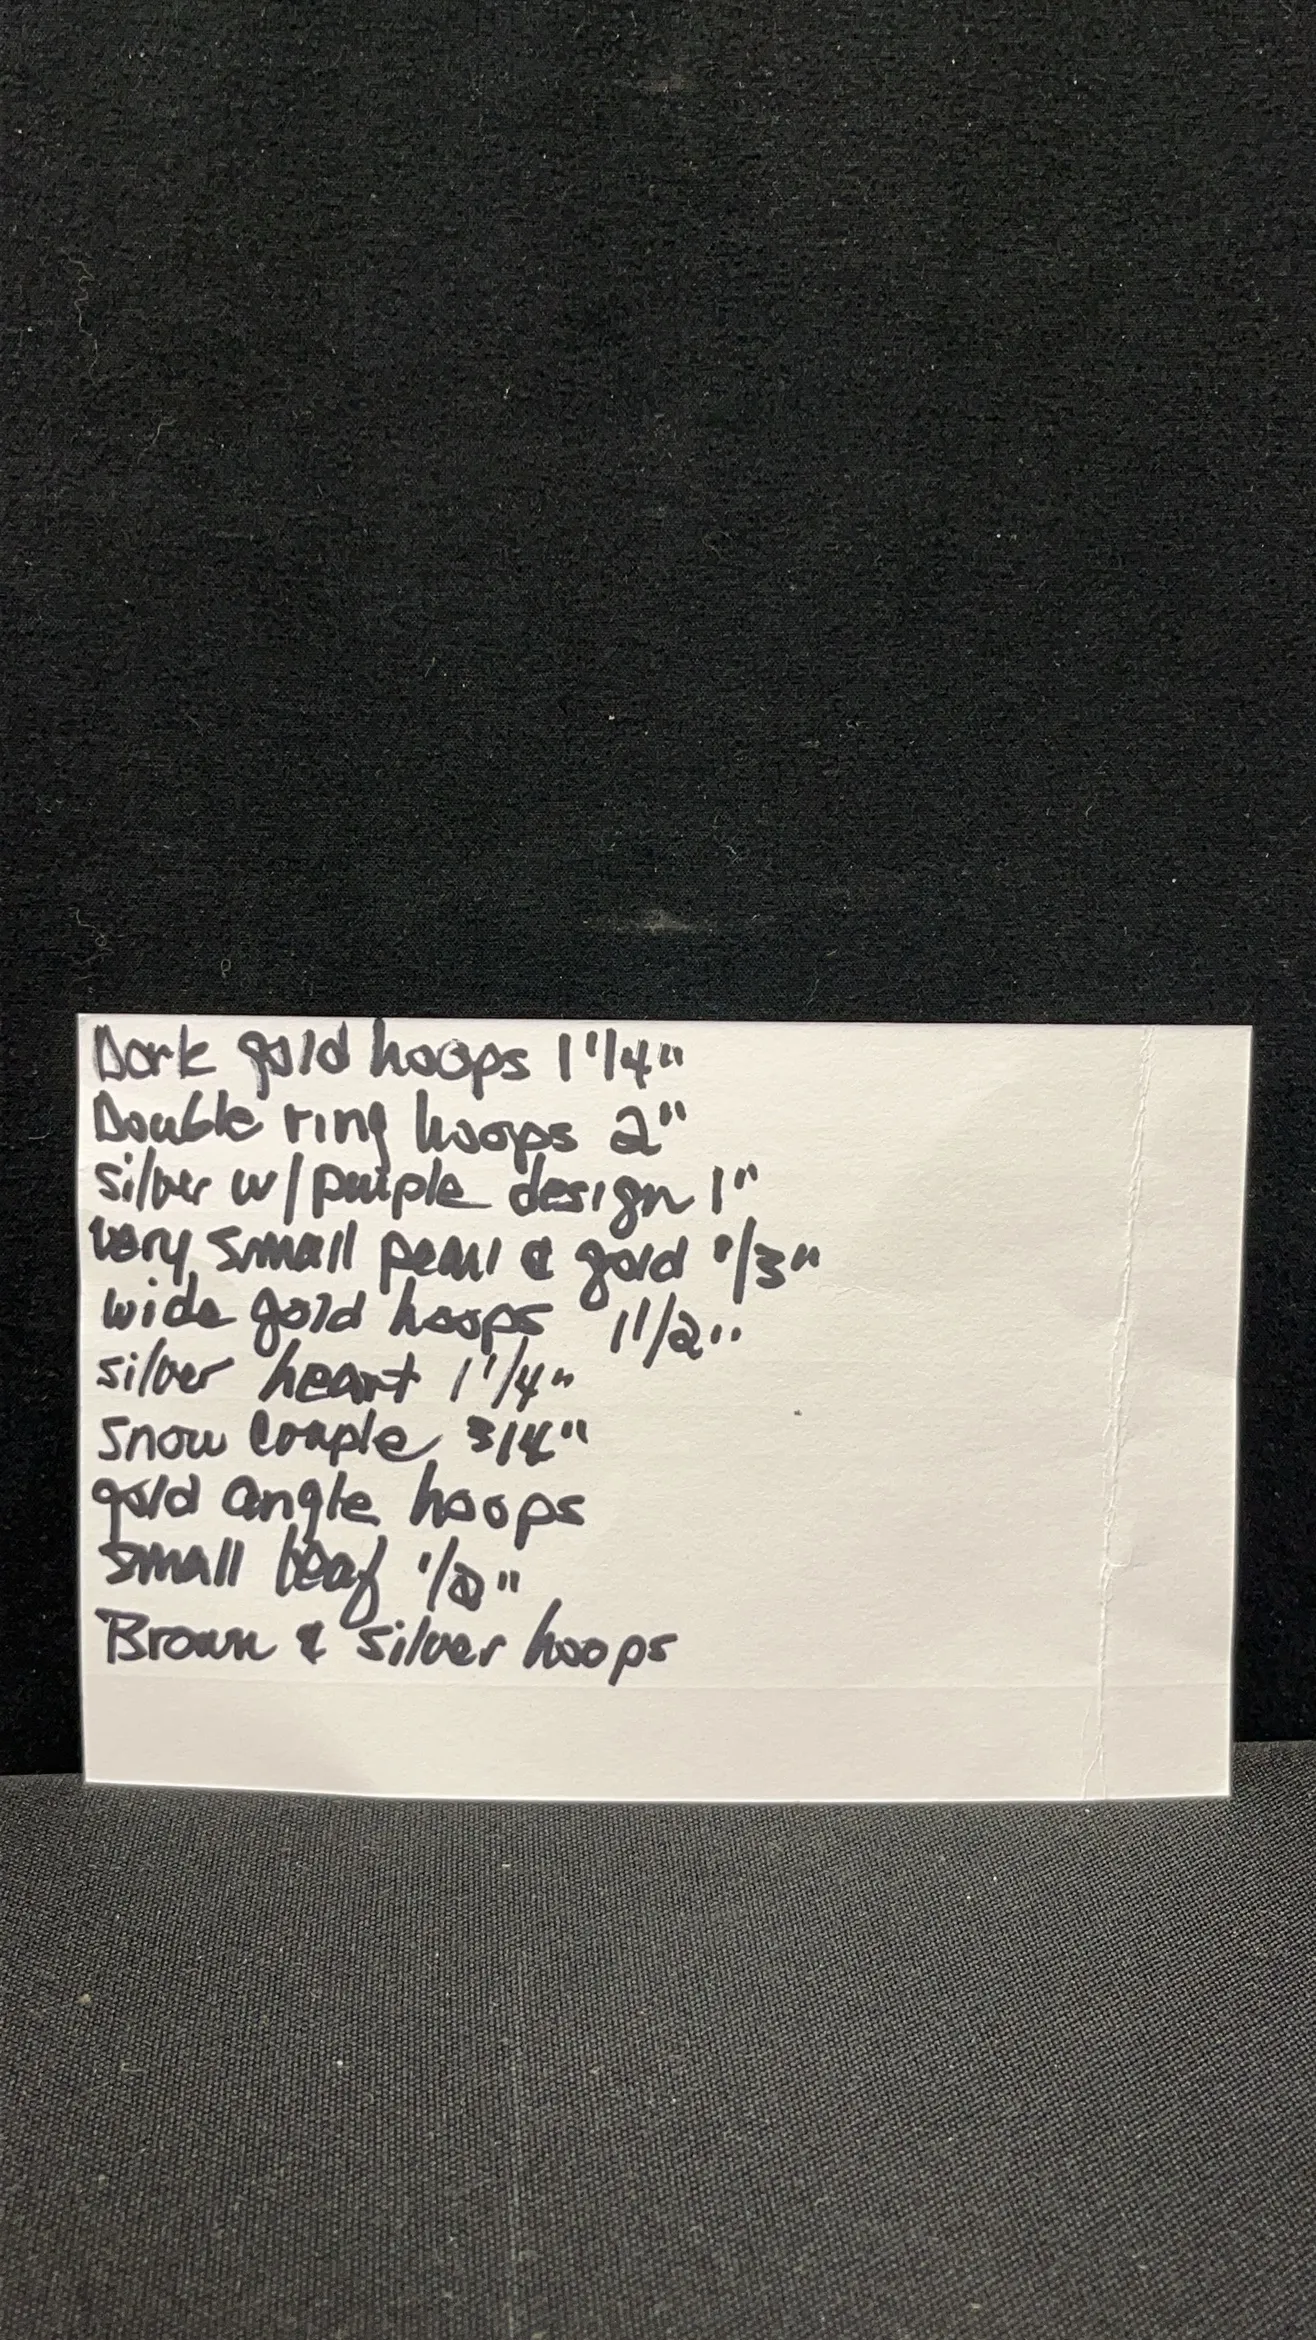 Dark gold hoops 1 1/4"
Double ring hoops 2"
silver w/ purple design 1"
very small pearl & gold 1/3"
wide gold hoops 1 1/2"
silver heart 1 1/4"
snow couple 3/4"
gold angle hoops
small leaf 1/2"
Brown & silver hoops